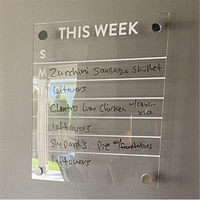 THIS WEEK
S
M Zucchini Sausage Skillet
leftovers
Cilantro Lime Chicken w/
leftovers
Shepard's Pie w/
leftovers